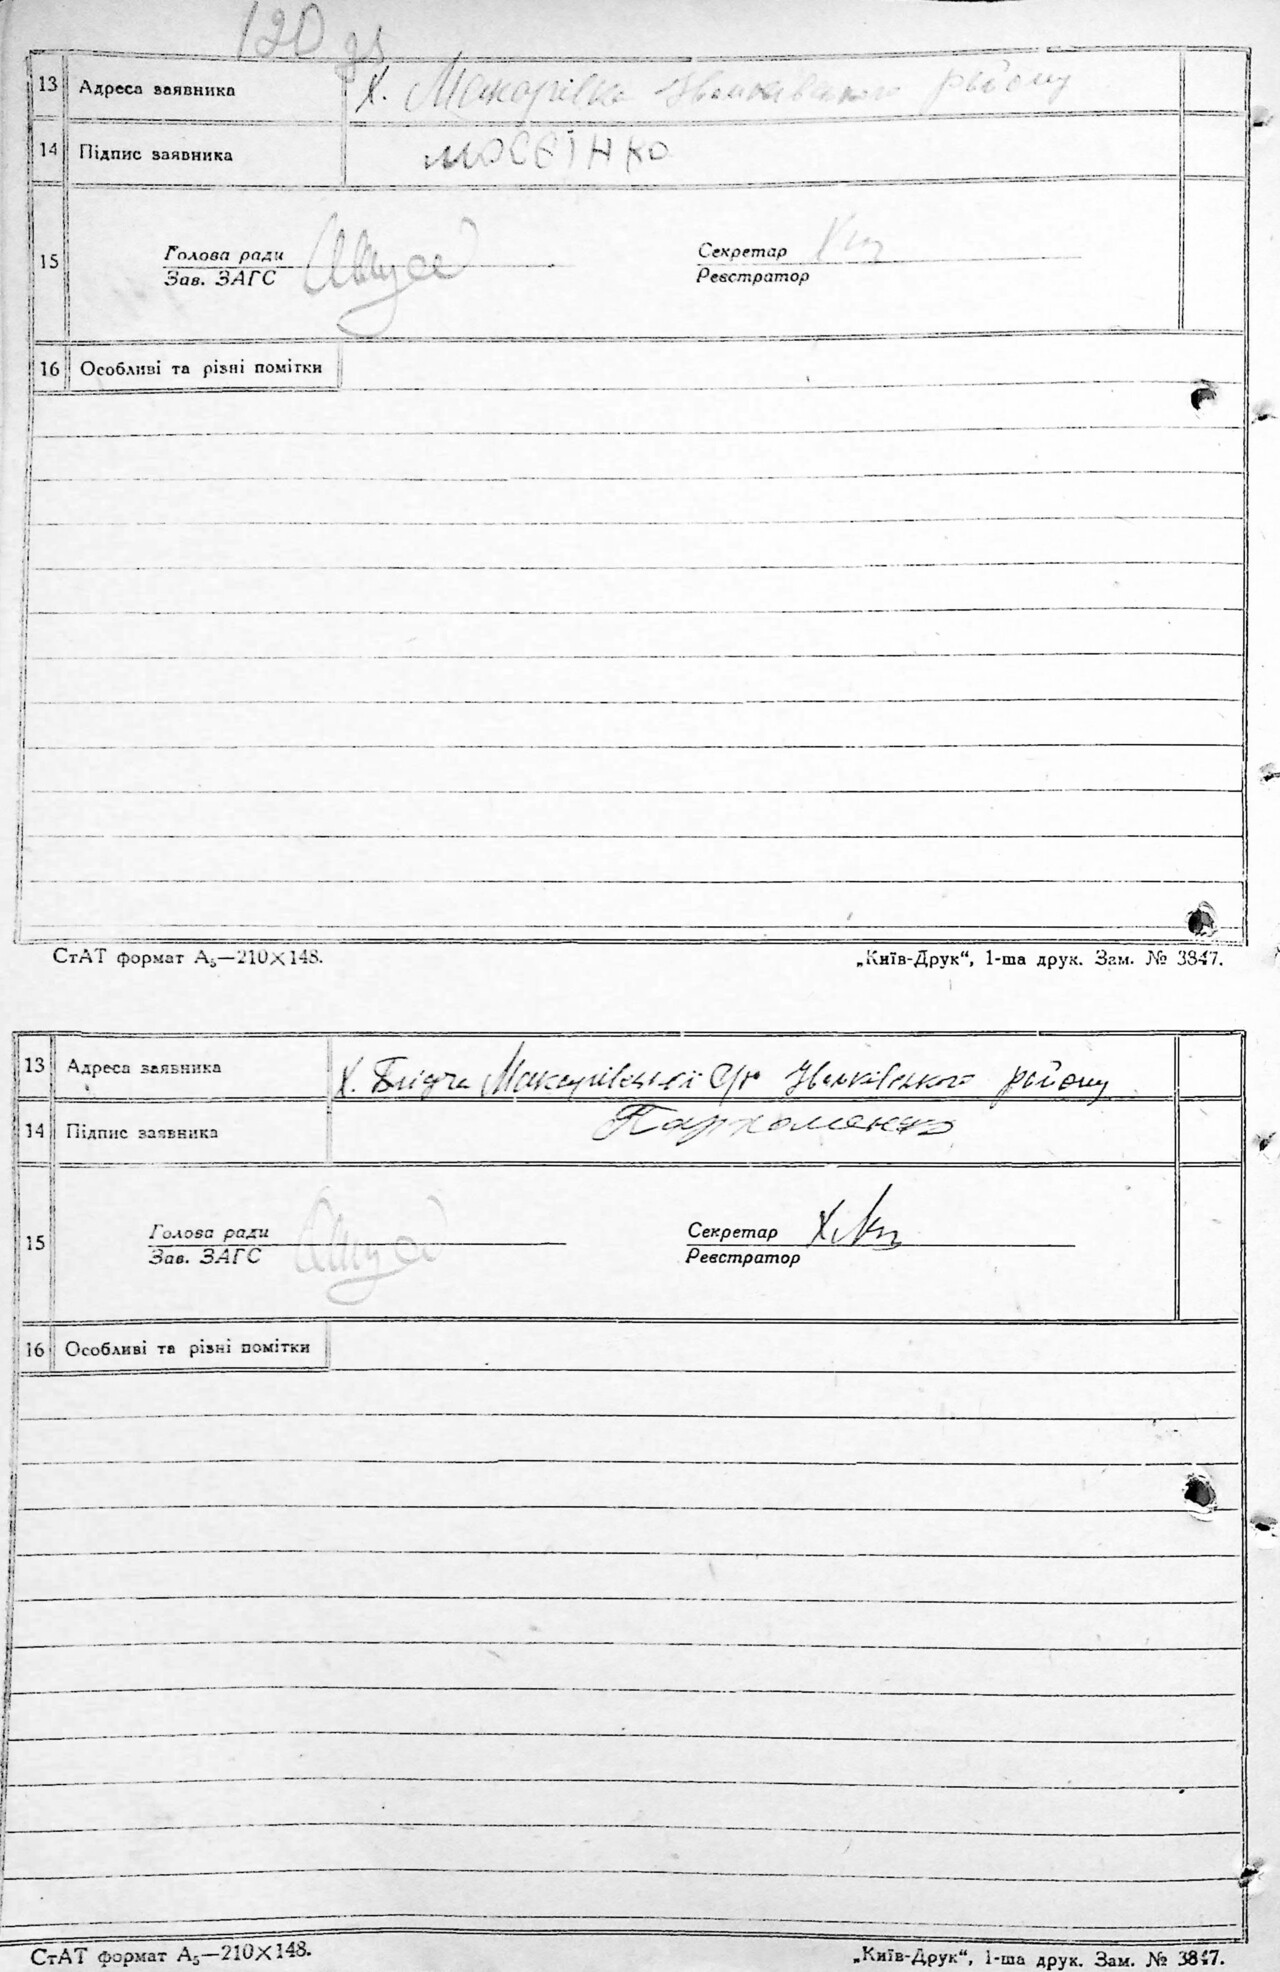 120 зв
13 Адреса заявника Х. Макарівка Іванківського району
14 Підпис заявника МОСЄІНКО
Голова ради Секретар
15
Зав. ЗАГС Реєстратор
16 Особливі та різні помітки
СтАТ формат А₅—210×148. „Київ-Друк“, 1-ша друк. Зам. № 3847.
13 Адреса заявника Х. Макарівської с/р Іванківського району
14 Підпис заявника Пархоменко
Голова ради Секретар
15
Зав. ЗАГС Реєстратор
16 Особливі та різні помітки
СтАТ формат А₅—210×148. „Київ-Друк“, 1-ша друк. Зам. № 3847.